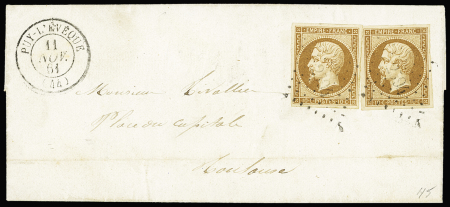 PUY-L'EVÊQUE
11
NOV.
61
EMPIRE FRANC.
EMPIRE FRANC.
Monsieur
Place du Capitole
Toulouse